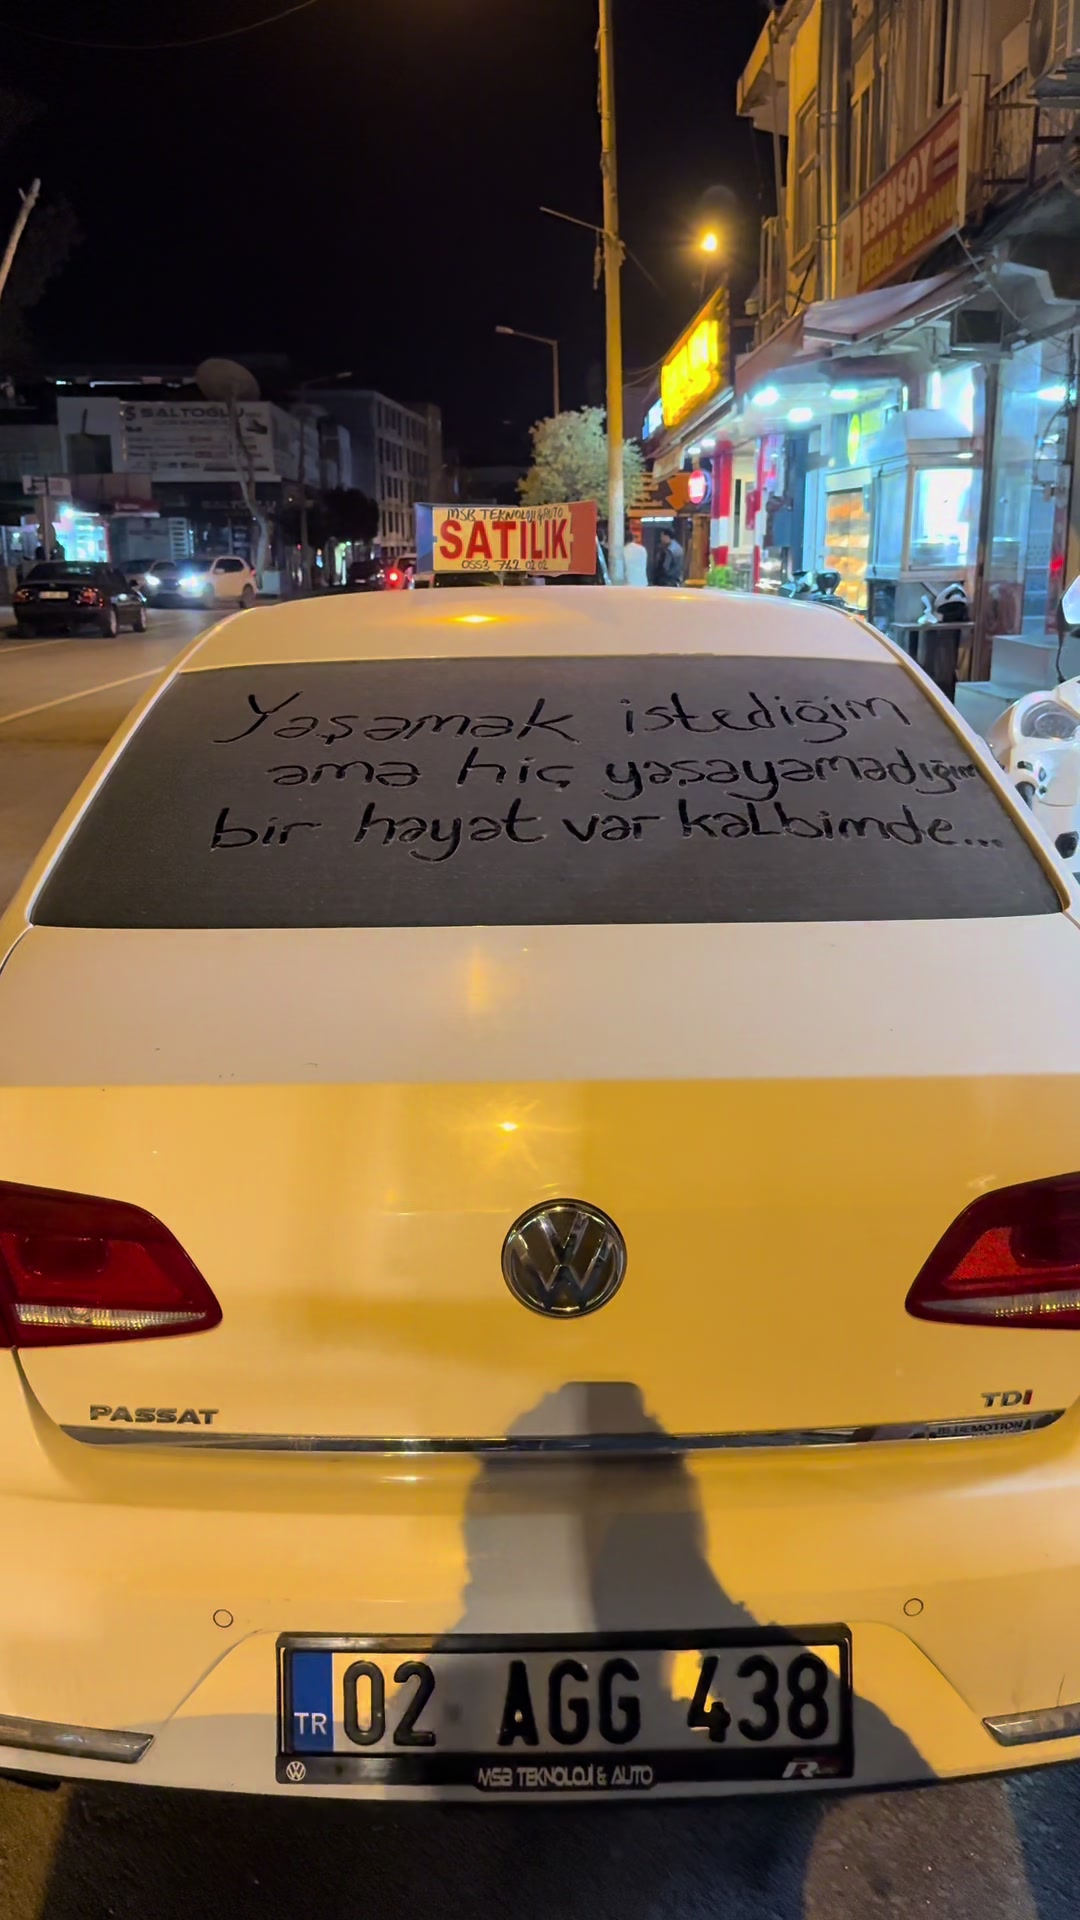 ESENSOY
KEBAP SALONU
SALTOĞLU
MSB TEKNOLOJİ & AUTO
SATILIK
0553 742 02 02
Yaşamak istediğim
ama hiç yaşayamadığım
bir hayat var kalbimde...
PASSAT
TDI
BLUEMOTION
TR 02 AGG 438
MSB TEKNOLOJİ & AUTO R